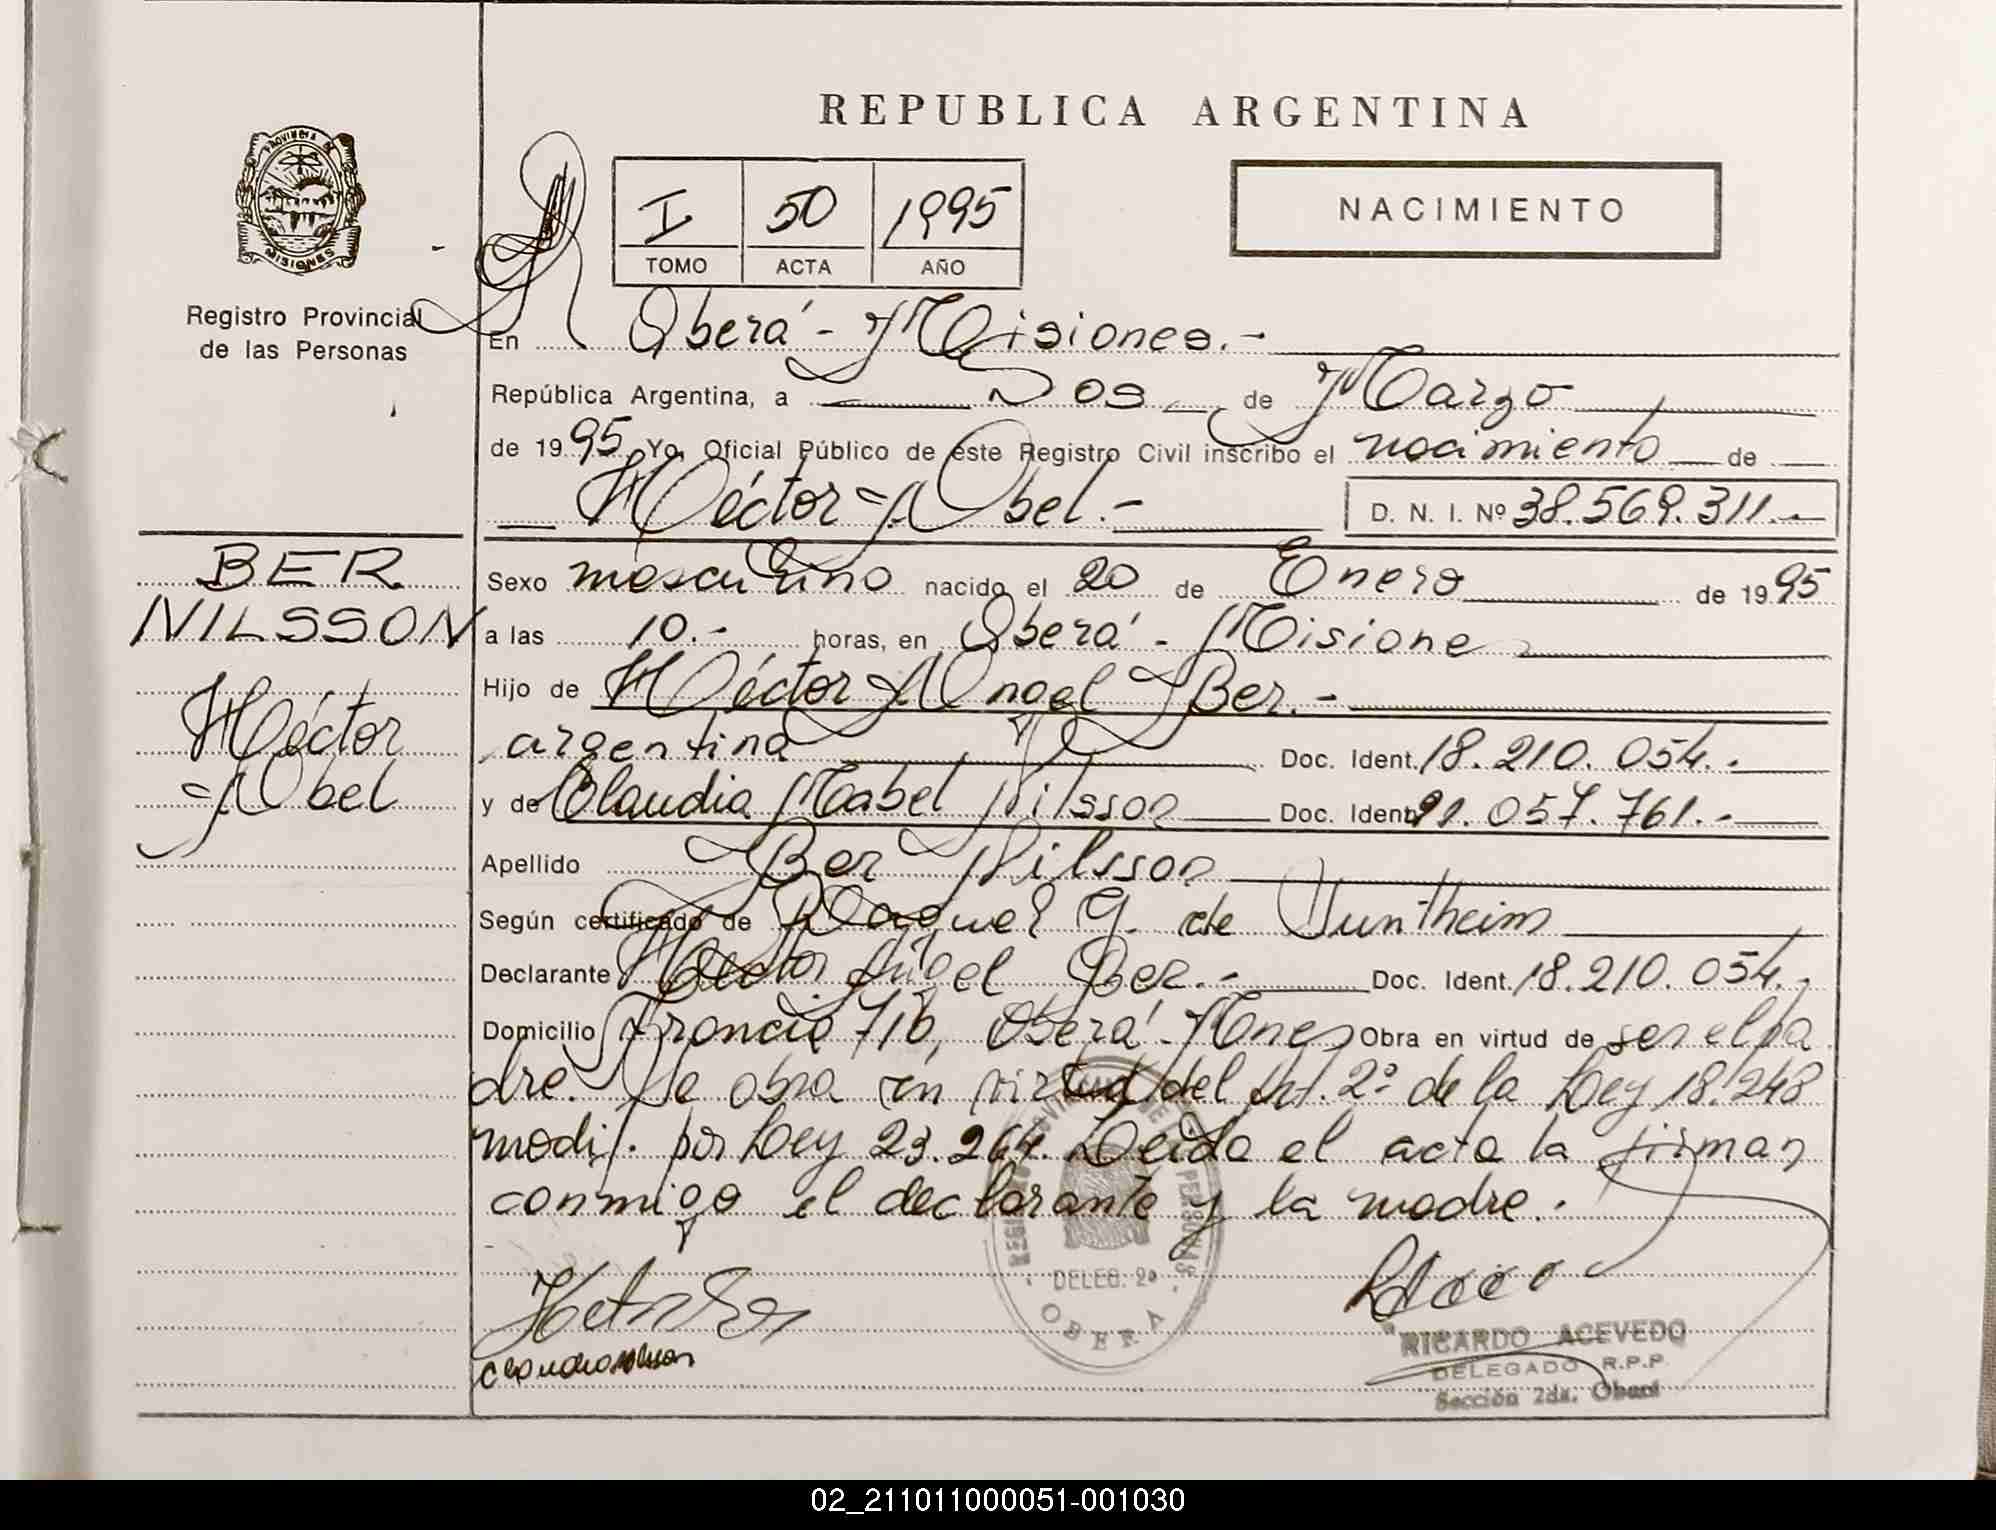 REPUBLICA ARGENTINA
PROVINCIA DE
MISIONES
Registro Provincial
de las Personas
I 50 1995
TOMO ACTA AÑO
NACIMIENTO
En Oberá - Misiones.-
República Argentina, a Dos de Marzo
de 1995 Yo, Oficial Público de este Registro Civil inscribo el nacimiento de
Héctor Abel.- D. N. I. Nº 38.569.311.-
BER
NILSSON
Héctor
Abel
Sexo masculino nacido el 20 de Enero de 1995
a las 10.- horas, en Oberá - Misiones
Hijo de Héctor Angel Ber.-
argentina Doc. Ident. 18.210.054.-
y de Claudia Mabel Nilsson Doc. Ident. 21.057.761.-
Apellido Ber Nilsson
Según certificado de Raquel G. de
Declarante Héctor Angel Ber.- Doc. Ident. 18.210.054.-
Domicilio Francia 716, Oberá - Mnes Obra en virtud de ser el pa
dre. Se obra en virtud del Art. 2º de la Ley 18.248
modif. por Ley 23.264. Leída el acta la firman
conmigo el declarante y la madre.
DELEG. 2a
OBERA
RICARDO ACEVEDO
DELEGADO R.P.P.
Sección 2da. Oberá
02_211011000051-001030